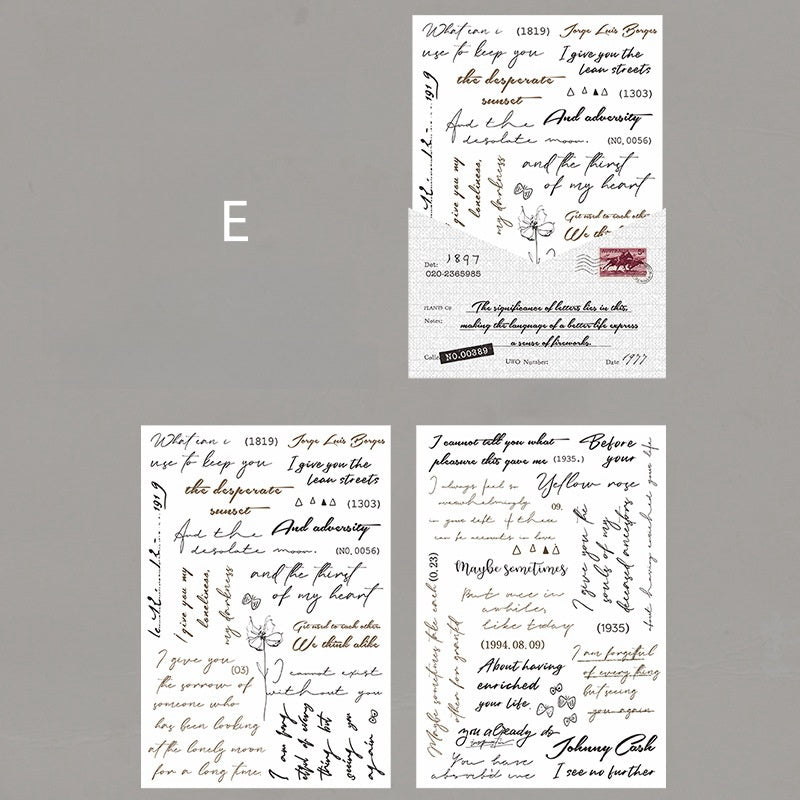 E
What can i (1819) Jorge Luis Borges
use to keep you I give you the
lean streets
the desperate
sunset (1303)
And the And adversity
desolate moon. (NO, 0056)
1919
give you my
loneliness,
my darkness
and the thirst
of my heart
Get used to each other
We th
Det: 1897
020-2365985
Notes:
The significance of letters lies in this,
making the language of a better life express
a sense of fireworks.
NO.00389
UWO Number:
Date 1977
What can i (1819) Jorge Luis Borges
use to keep you I give you the
lean streets
the desperate
sunset (1303)
And the And adversity
desolate moon. (NO, 0056)
1919
I give you my
loneliness,
my darkness
and the thirst
of my heart
Get used to each other
We think alike
I give you
(03)
the sorrow of
someone who
has been looking
at the lonely moon
for a long time.
I cannot exist
without you
I am forg
etful of every
thing but
seeing you
again
I cannot tell you what
pleasure this gave me (1935.)
Before
your
I always feel so
overwhelmingly 09.
in your debt if there
can be accounts in love
Yellow rose
I give you the
souls of my
deceased ancestors
Maybe sometimes
But once in
awhile
like today
(0.23)
(1994.08.09)
(1935)
About having
enriched
your life.
I am forgetful
of every thing
but seeing
you again
you already do
You have
absorb'd me
Johnny Cash
I see no further